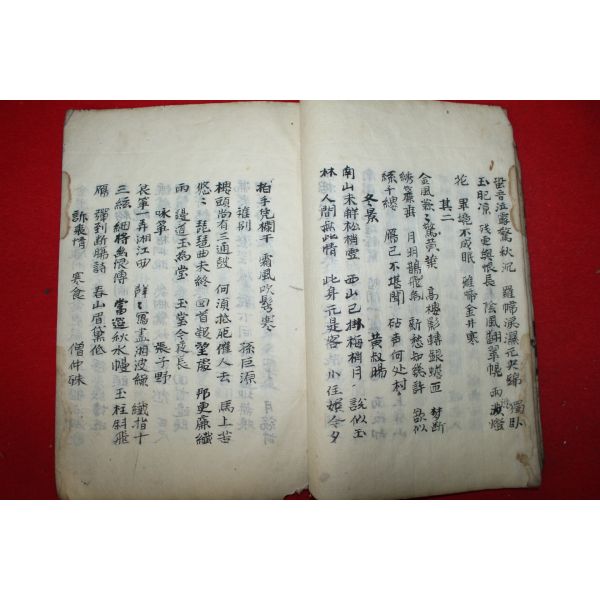 蛩音泣露驚秋沉 羅幃濕濕元央錦 獨臥
玉肌凉 殘更與恨長 陰風翻翠幌 雨澁燈
花 畢竟不成眠 鴉啼金井寒
其二
金風簌簌驚黃葉 高樓影轉銀蟾匝 夢斷
繡簾垂 月明鵲飛 新愁知幾許 欲似
絲千縷 雁已不堪聞 砧声何处村
冬景 黃叔暘
南山未觧松梢雪 西山已掛梅梢月 說似玉
林人 人間無此情 此身元是客 小住娛今夕
拍手凭欄干 霜風吹鬢寒
離別 孫巨源
樓頭尚有三通鼓 何湏抵死催人去 馬上苦
悤〻 琵琶曲未終 回首望處 那更廉纖
雨 謾道玉為堂 玉堂今夜長
咏箏 張子野
哀箏一弄湘江曲 聲〻寫盡湘波綠 纖指十
三絃 細將幽恨傳 當筵秋水慢 玉柱斜飛
雁 彈到断膓時 春山眉黛低
訴衷情 寒食 僧仲殊